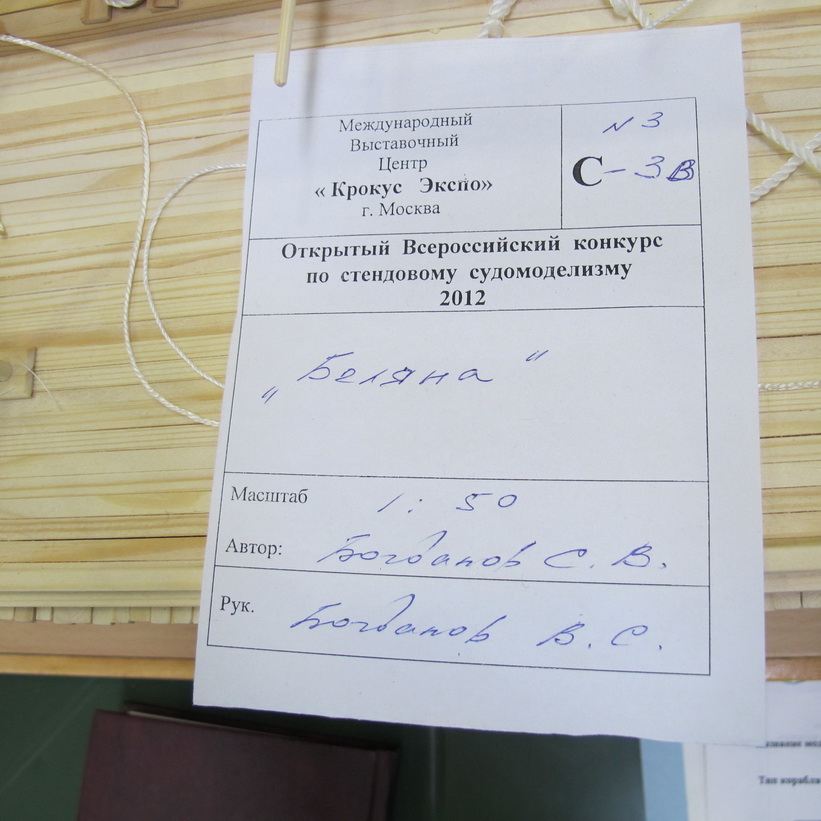 Международный
Выставочный
Центр
« Крокус Экспо»
г. Москва
N 3
С - 3В
Открытый Всероссийский конкурс
по стендовому судомоделизму
2012
„Беляна“
Масштаб 1 : 50
Автор: Богданов С. В.
Рук. Богданов В. С.
Тип корабля